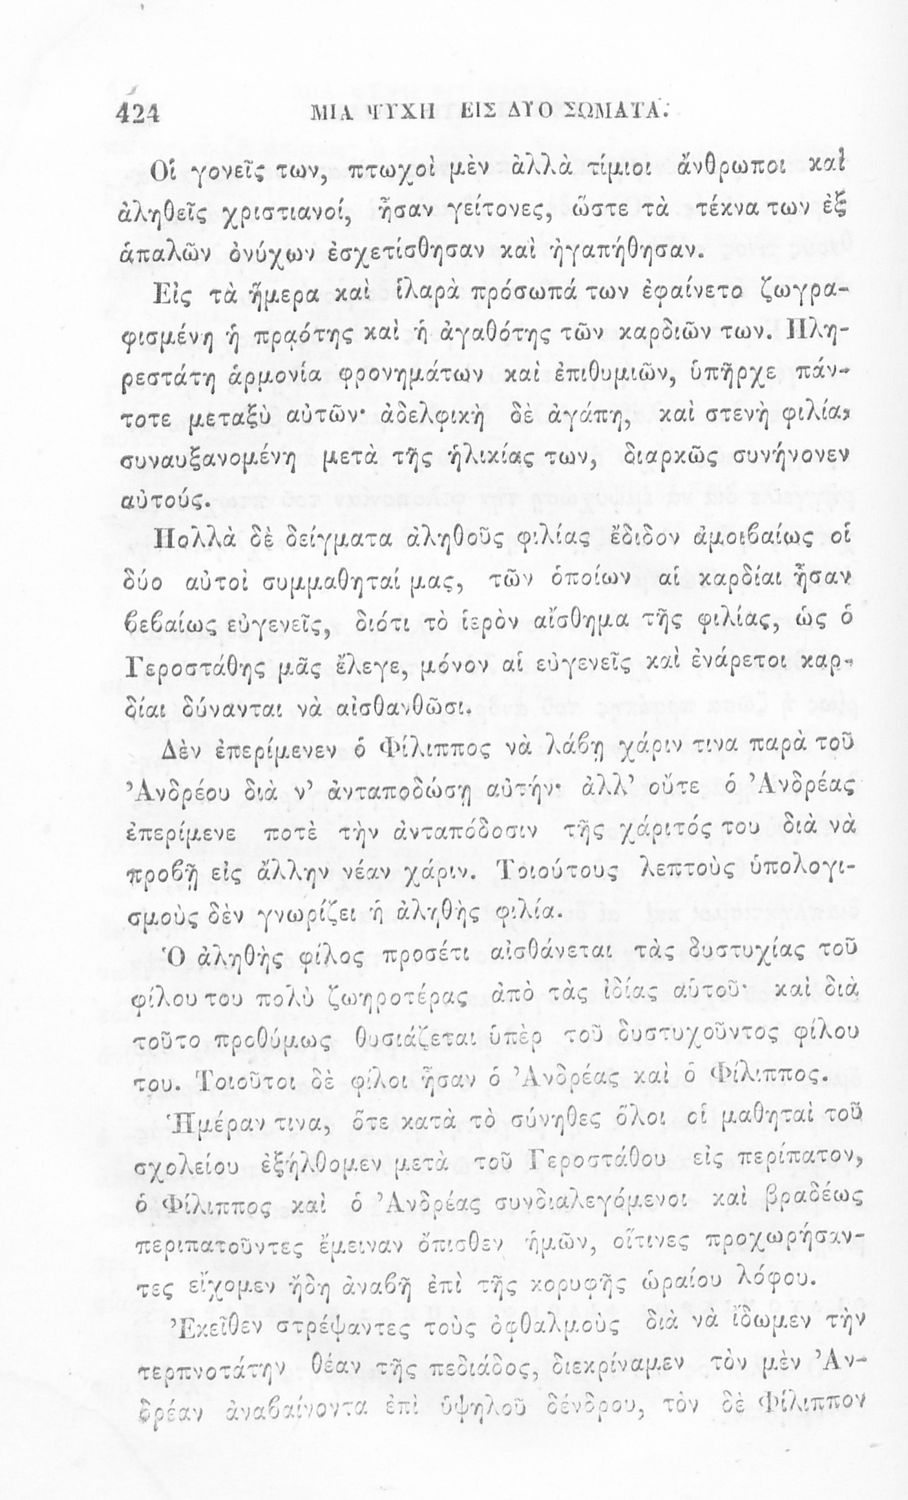 424 ΜΙΑ ΨΥΧΗ ΕΙΣ ΔΥΟ ΣΩΜΑΤΑ.
Οἱ γονεῖς των, πτωχοὶ μὲν ἀλλὰ τίμιοι ἄνθρωποι καὶ
ἀληθεῖς χριστιανοί, ἦσαν γείτονες, ὥστε τὰ τέκνα των ἐξ
ἁπαλῶν ὀνύχων ἐσχετίσθησαν καὶ ἠγαπήθησαν.
Εἰς τὰ ἥμερα καὶ ἱλαρὰ πρόσωπά των ἐφαίνετο ζωγρα-
φισμένη ἡ πραότης καὶ ἡ ἀγαθότης τῶν καρδιῶν των. Πλη-
ρεστάτη ἁρμονία φρονημάτων καὶ ἐπιθυμιῶν, ὑπῆρχε πάν-
τοτε μεταξὺ αὐτῶν· ἀδελφικὴ δὲ ἀγάπη, καὶ στενὴ φιλία,
συναυξανομένη μετὰ τῆς ἡλικίας των, διαρκῶς συνήνονεν
αὐτούς.
Πολλὰ δὲ δείγματα ἀληθοῦς φιλίας ἔδιδον ἀμοιβαίως οἱ
δύο αὐτοὶ συμμαθηταί μας, τῶν ὁποίων αἱ καρδίαι ἦσαν
βεβαίως εὐγενεῖς, διότι τὸ ἱερὸν αἴσθημα τῆς φιλίας, ὡς ὁ
Γεροστάθης μᾶς ἔλεγε, μόνον αἱ εὐγενεῖς καὶ ἐνάρετοι καρ-
δίαι δύνανται νὰ αἰσθανθῶσι.
Δὲν ἐπερίμενεν ὁ Φίλιππος νὰ λάβῃ χάριν τινα παρὰ τοῦ
Ἀνδρέου διὰ ν’ ἀνταποδώσῃ αὐτήν· ἀλλ’ οὔτε ὁ Ἀνδρέας
ἐπερίμενε ποτὲ τὴν ἀνταπόδοσιν τῆς χάριτός του διὰ νὰ
προβῇ εἰς ἄλλην νέαν χάριν. Τοιούτους λεπτοὺς ὑπολογι-
σμοὺς δὲν γνωρίζει ἡ ἀληθὴς φιλία.
Ὁ ἀληθὴς φίλος προσέτι αἰσθάνεται τὰς δυστυχίας τοῦ
φίλου του πολὺ ζωηροτέρας ἀπὸ τὰς ἰδίας αὑτοῦ· καὶ διὰ
τοῦτο προθύμως θυσιάζεται ὑπὲρ τοῦ δυστυχοῦντος φίλου
του. Τοιοῦτοι δὲ φίλοι ἦσαν ὁ Ἀνδρέας καὶ ὁ Φίλιππος.
Ἡμέραν τινα, ὅτε κατὰ τὸ σύνηθες ὅλοι οἱ μαθηταὶ τοῦ
σχολείου ἐξήλθομεν μετὰ τοῦ Γεροστάθου εἰς περίπατον,
ὁ Φίλιππος καὶ ὁ Ἀνδρέας συνδιαλεγόμενοι καὶ βραδέως
περιπατοῦντες ἔμειναν ὄπισθεν ἡμῶν, οἵτινες προχωρήσαν-
τες εἴχομεν ἤδη ἀναβῆ ἐπὶ τῆς κορυφῆς ὡραίου λόφου.
Ἐκεῖθεν στρέψαντες τοὺς ὀφθαλμοὺς διὰ νὰ ἴδωμεν τὴν
τερπνοτάτην θέαν τῆς πεδιάδος, διεκρίναμεν τὸν μὲν Ἀν-
δρέαν ἀναβαίνοντα ἐπὶ ὑψηλοῦ δένδρου, τὸν δὲ Φίλιππον